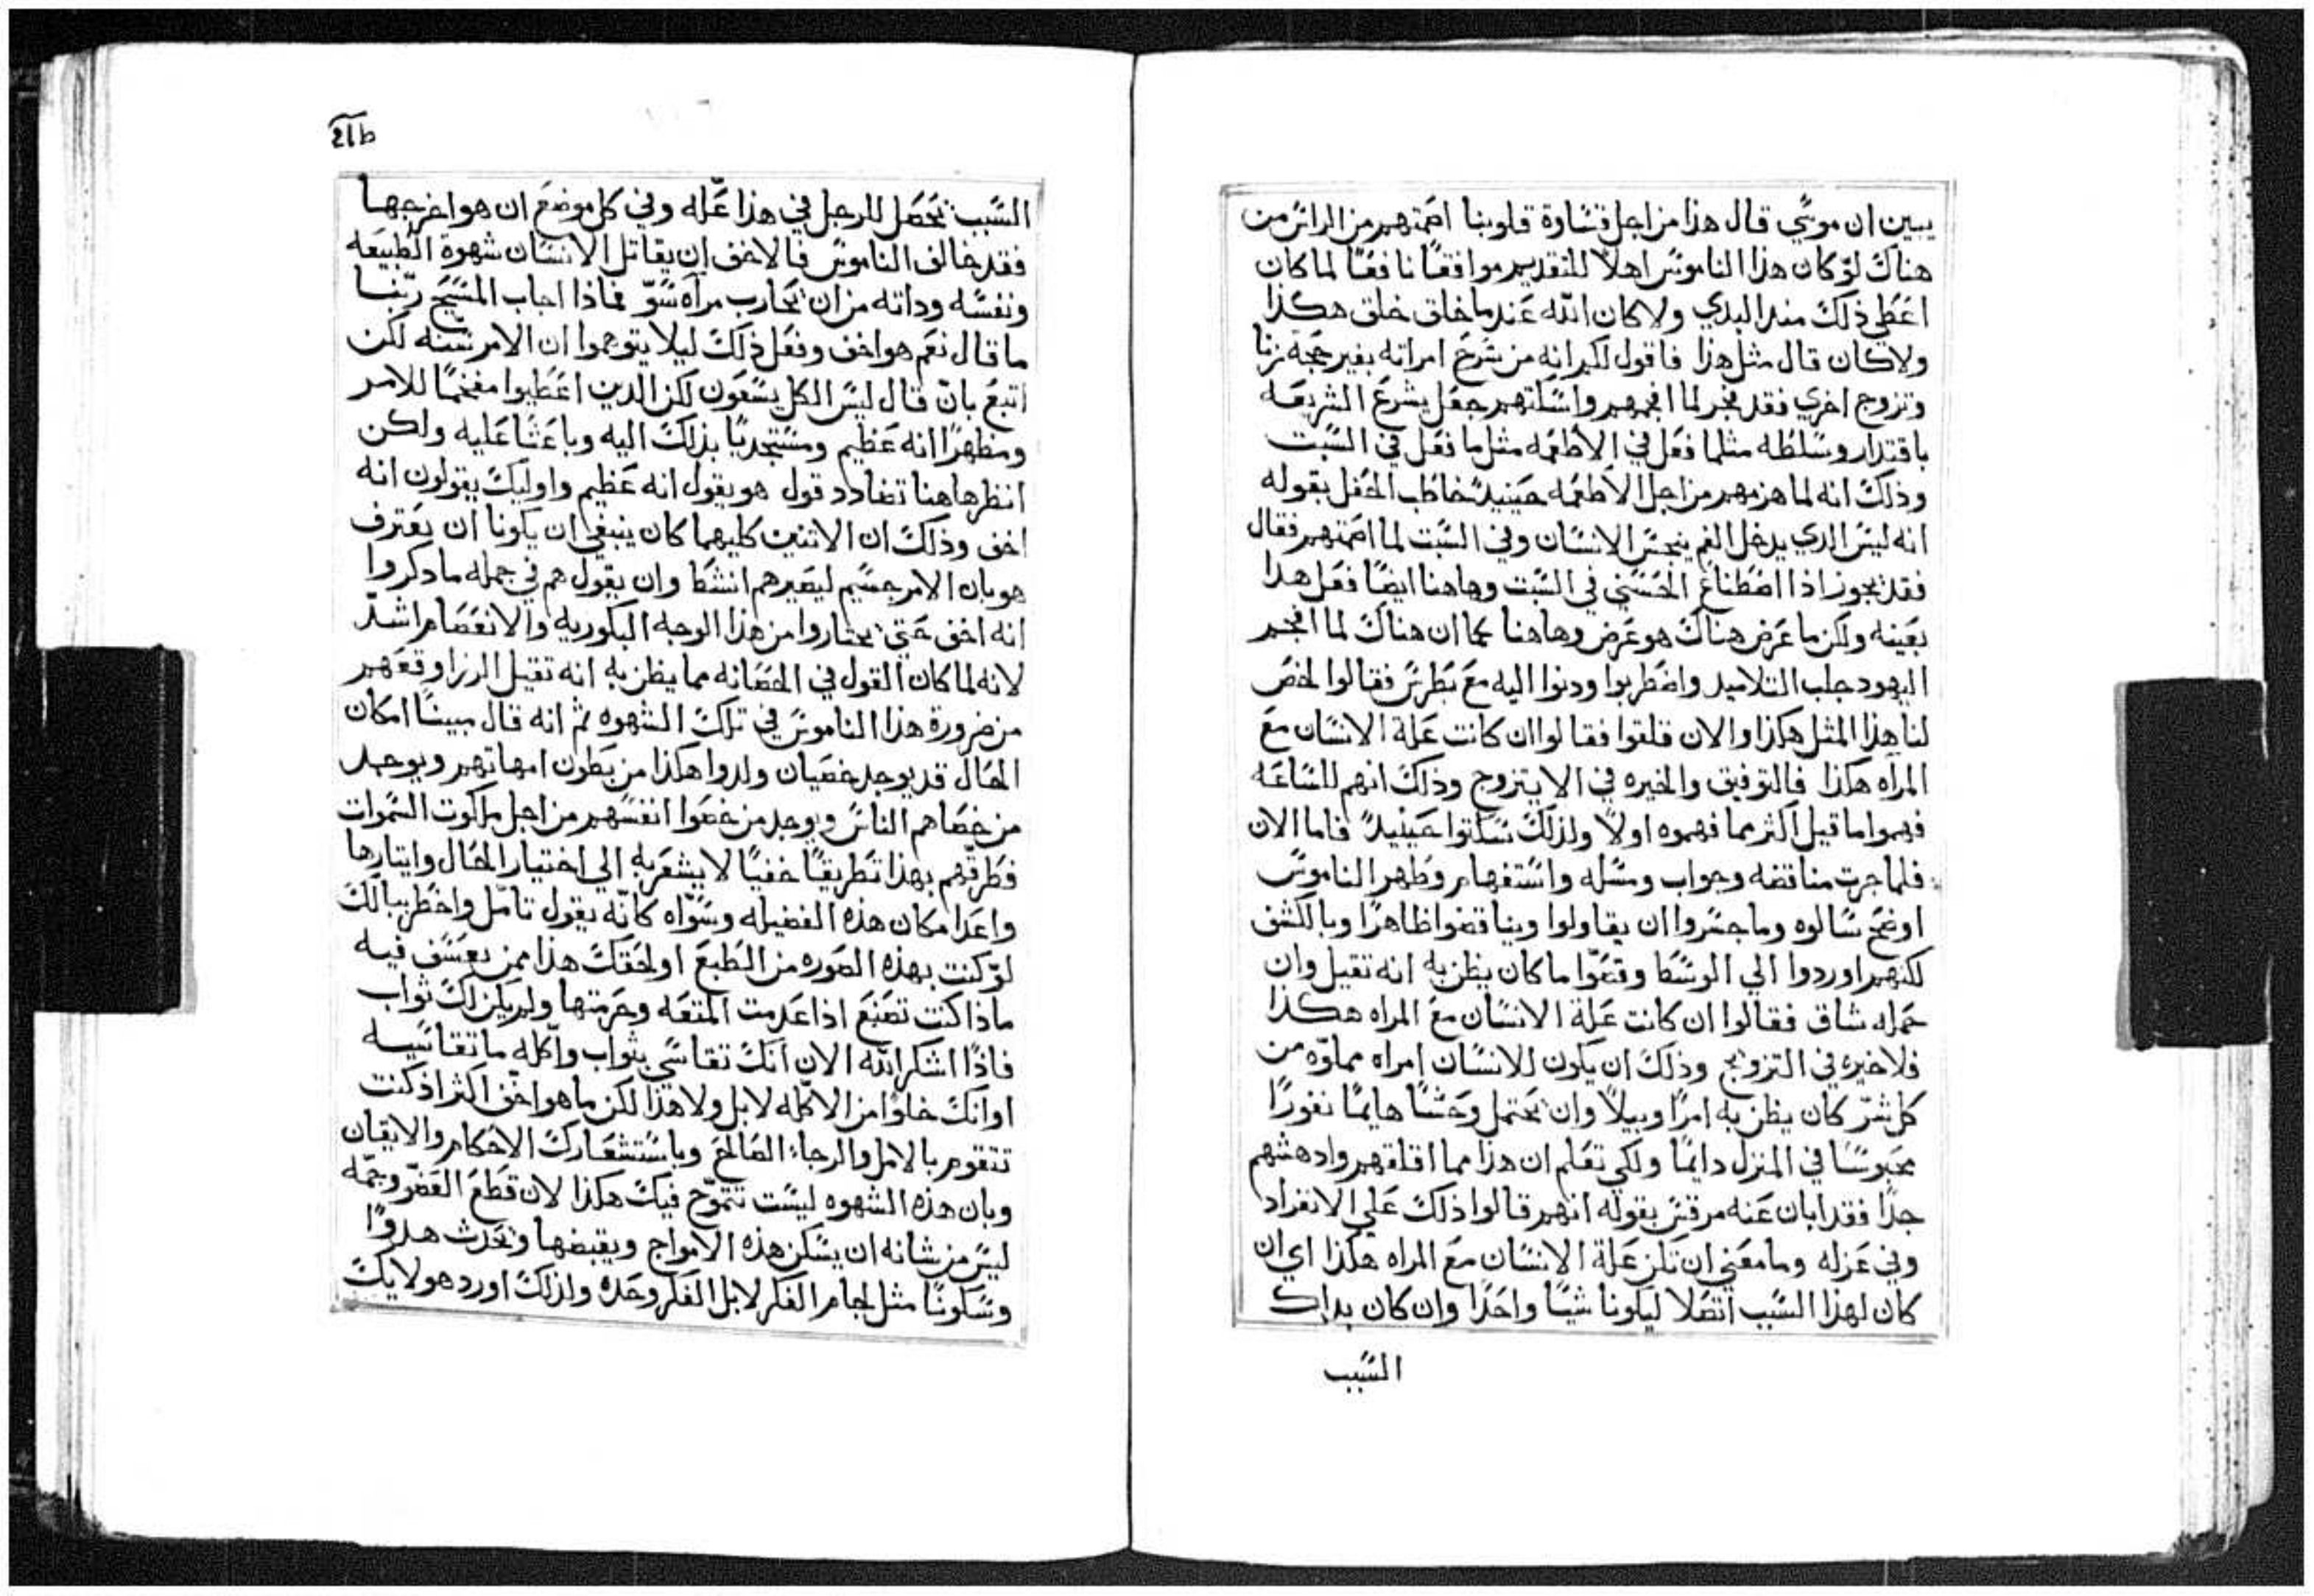 يبين ان موسي قال هذا من اجل قساوة قلوبنا اصمتهم من الراس من
هناك لو كان هذا الناموس اهلا للتقديم موافقا نافعا لما كان
اعطي ذلك مند البدي ولا كان الله عندما خلق خلق هكذا
ولا كان قال مثل هذا فاقول لكم انه من شرع امراته بغير حجة زنا
وتزوج اخري فقد فجر لما افحمهم واسكتهم جعل يشرع الشريعه
باقتدار وسلطه مثلما فعل في الاطعمه مثل ما فعل في السبت
وذلك انه لما هزمهم من اجل الاطعمه حينيد خاطب الحفل بقوله
انه ليس الدي يدخل الفم ينجس الانسان وفي السبت لما اصمتهم فقال
فقد يجوز اذا اصطناع الحسني في السبت وهاهنا ايضا فعل هدا
بعينه ولكن ما عرض هناك هو عرض وهاهنا كما ان هناك لما افحم
اليهود جلب التلاميد واضطربوا ودنوا اليه مع بطرس فقالوا لخص
لنا هذا المثل هكذا والان قلقوا فقالوا ان كانت علة الانسان مع
المراه هكذا فالتوفيق والخيره في الا يتزوج وذلك انهم للساعه
فهموا ما قيل اكثر مما فهموه اولا ولذلك سكتوا حينيد فاما الان
فلما جرت مناقضه وجواب ومسله واستفهام وظهر الناموس
اوضح سالوه وما جسروا ان يقاولوا ويناقضوا ظاهرا وبالكشف
لكنهم اوردوا الي الوسط وقصوا ما كان يظن به انه تقيل وان
حمله شاق فقالوا ان كانت علة الانسان مع المراه هكذا
فلا خيره في التزويج وذلك ان يكون للانسان امراه مملوه من
كل شر كان يظن به امرا وبيلا وان يحتمل وحشا هايما نفورا
محبوسا في المنزل دايما ولكي تعلم ان هذا مما اقلقهم وادهشهم
جدا فقد ابان عنه مرقس بقوله انهم قالوا ذلك علي الانفراد
وفي عزله وما معني ان تكن علة الانسان مع المراه هكذا اي ان
كان لهذا السبب اتصلا ليكونا شيا واحدا وان كان بداك
السبب
السبب تحصل للرجل في هذا عله وفي كل موضع ان هو اخرجها
فقد خالف الناموس فالاخف ان يقاتل الانسان شهوة الطبيعه
ونفسه وداته من ان يحارب مراه سو فماذا اجاب المسيح ربنا
ما قال نعم هو اخف وفعل ذلك ليلا يتوهموا ان الامر سنه لكن
اتبع بان قال ليس الكل يسعون لكن الدين اعطيوا مفخما للامر
ومظهرا انه عظيم ومستجديا بذلك اليه وباعثا عليه ولكن
انظر هاهنا تضادد قول هو يقول انه عظيم واوليك يقولون انه
اخف وذلك ان الاتنين كليهما كان ينبغي ان يكونا ان يعترف
هو بان الامر جسيم ليصيرهم انشط وان يقول هم في جمله ما دكروا
انه اخف حتي يختاروا من هذا الوجه البكوريه والانعصام اشد
لانه لما كان القول في الحصانه مما يظن به انه تقيل الرزا وقعهم
من ضرورة هذا الناموس في تلك الشهوه ثم انه قال مبينا امكان
الحال قد يوجد خصيان ولدوا هكذا من بطون امهاتهم ويوجد
من خصاهم الناس ويوجد من خصوا انفسهم من اجل ملكوت السموات
فطرقهم بهذا تطريقا خفيا لا يشعر به الي اختيار الحال وايتارها
واعدا مكان هذه الفضيله وسواه كانه يقول تامل واخطر ببالك
لو كنت بهذه الصوره من الطبع او لحقك هذا ممن يعسف فيه
ماذا كنت تصنع اذا عدمت المتعه وحرمتها ولم يكن لك ثواب
فاذا اشكر الله الان انك تقاسي بثواب واكله ما تقاسيه
او انك خلوا من الاكله لا بل ولا هذا لكن ما هو اخف اكثر اذ كنت
تتقوم بالامل والرجاء الصالح وباستشعارك الاحكام والايقان
وبان هذه الشهوه ليست تتموج فيك هكذا لان قطع العضو وجمه
ليس من شانه ان يسكن هذه الامواج ويقبضها ويحدث هدوا
وسكونا مثل لجام الفكر لا بل الفكر وحده ولذلك اورد هولايك